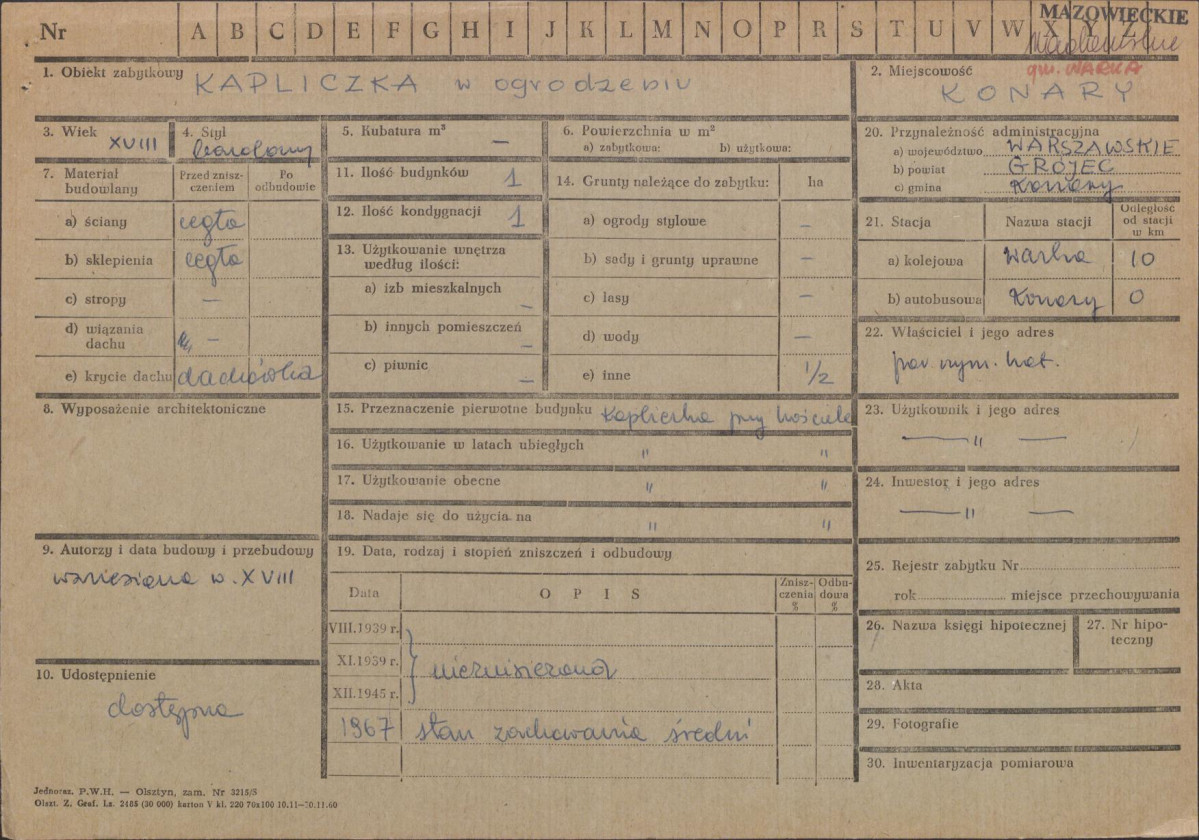 Nr A B C D E F G H I J K L M N O P R S T U V W X Y Z
MAZOWIECKIE
gm. WARKA
1. Obiekt zabytkowy KAPLICZKA w ogrodzeniu
2. Miejscowość
KONARY
3. Wiek XVIII
4. Styl
barokowy
5. Kubatura m³ —
6. Powierzchnia w m²
a) zabytkowa: b) użytkowa:
7. Materiał budowlany
Przed zniszczeniem
Po odbudowie
a) ściany cegła
b) sklepienia cegła
c) stropy —
d) wiązania dachu —
e) krycie dachu dachówka
8. Wyposażenie architektoniczne
9. Autorzy i data budowy i przebudowy
wzniesiona w. XVIII
10. Udostępnienie
dostępna
11. Ilość budynków 1
12. Ilość kondygnacji 1
13. Użytkowanie wnętrza
według ilości:
a) izb mieszkalnych —
b) innych pomieszczeń —
c) piwnic —
14. Grunty należące do zabytku: ha
a) ogrody stylowe —
b) sady i grunty uprawne —
c) lasy —
d) wody —
e) inne 1/2
15. Przeznaczenie pierwotne budynku Kapliczka przy kościele
16. Użytkowanie w latach ubiegłych " "
17. Użytkowanie obecne " "
18. Nadaje się do użycia na " "
19. Data, rodzaj i stopień zniszczeń i odbudowy
Data OPIS Zniszczenia % Odbudowa %
VIII.1939 r.
XI.1939 r. niezniszczona
XII.1945 r.
1967 stan zachowania średni
20. Przynależność administracyjna
a) województwo WARSZAWSKIE
b) powiat GRÓJEC
c) gmina Konary
21. Stacja Nazwa stacji Odległość od stacji w km
a) kolejowa Warka 10
b) autobusowa Konary 0
22. Właściciel i jego adres
par. rzym. kat.
23. Użytkownik i jego adres
— " —
24. Inwestor i jego adres
— " —
25. Rejestr zabytku Nr
rok miejsce przechowywania
26. Nazwa księgi hipotecznej
27. Nr hipoteczny
28. Akta
29. Fotografie
30. Inwentaryzacja pomiarowa
Jednoraz. P.W.H. — Olsztyn, zam. Nr 3215/5
Olszt. Z. Graf. Lz. 2485 (30 000) karton V kl. 220 70x100 10.11—30.11.60